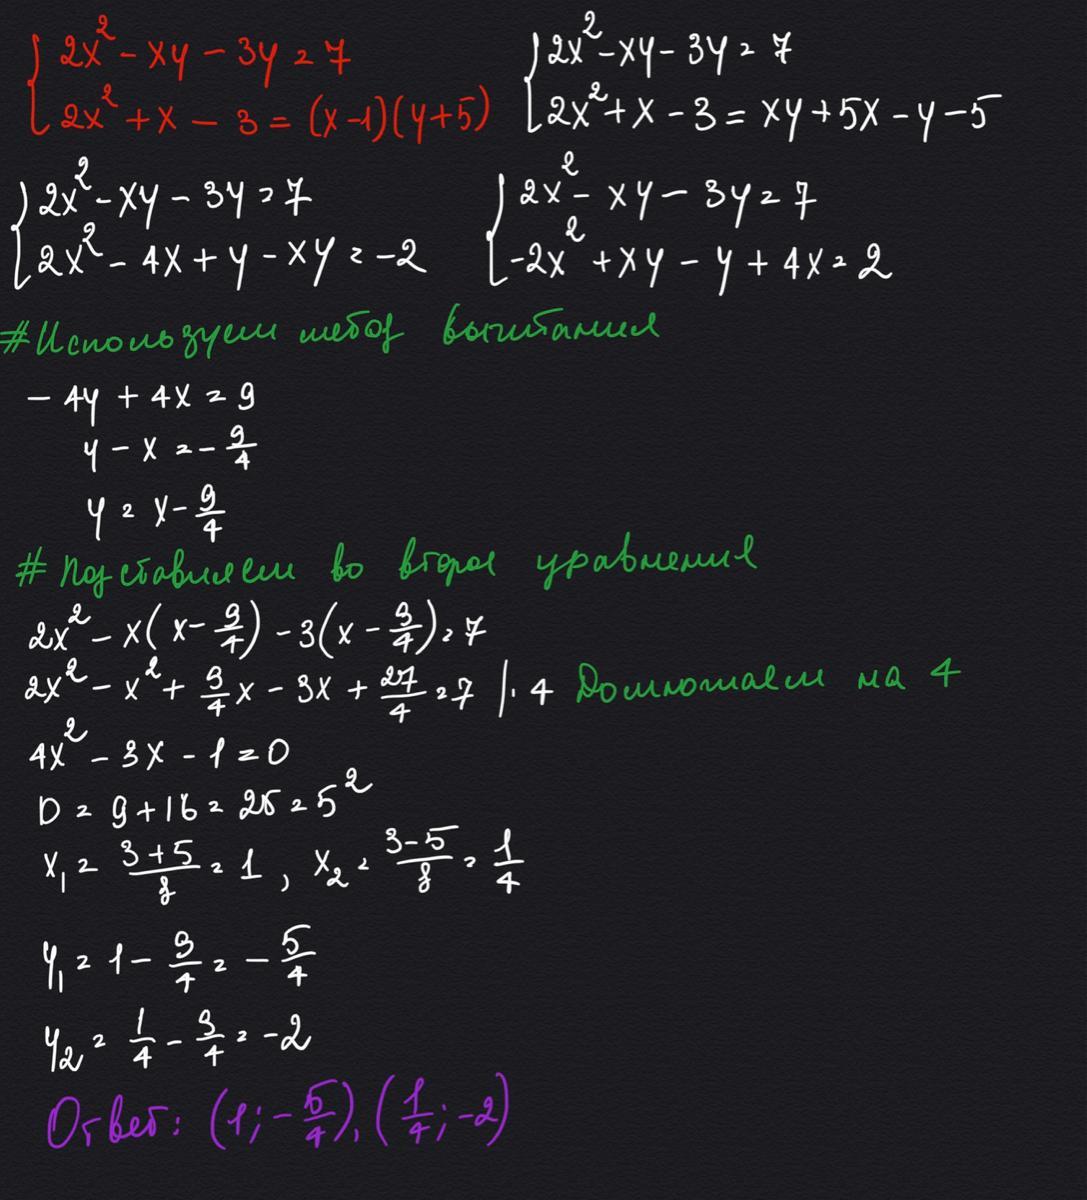 { 2x² - xy - 3y = 7 { 2x² - xy - 3y = 7
{ 2x² + x - 3 = (x-1)(y+5) { 2x² + x - 3 = xy + 5x - y - 5
{ 2x² - xy - 3y = 7 { 2x² - xy - 3y = 7
{ 2x² - 4x + y - xy = -2 { -2x² + xy - y + 4x = 2
# Используем метод вычитания
- 4y + 4x = 9
y - x = - 9/4
y = x - 9/4
# Подставляем во второе уравнение
2x² - x(x - 9/4) - 3(x - 9/4) = 7
2x² - x² + 9/4 x - 3x + 27/4 = 7 |· 4 Домножаем на 4
4x² - 3x - 1 = 0
D = 9 + 16 = 25 = 5²
x₁ = (3+5)/8 = 1, x₂ = (3-5)/8 = 1/4
y₁ = 1 - 9/4 = - 5/4
y₂ = 1/4 - 9/4 = -2
Ответ: (1; - 5/4), (1/4; -2)